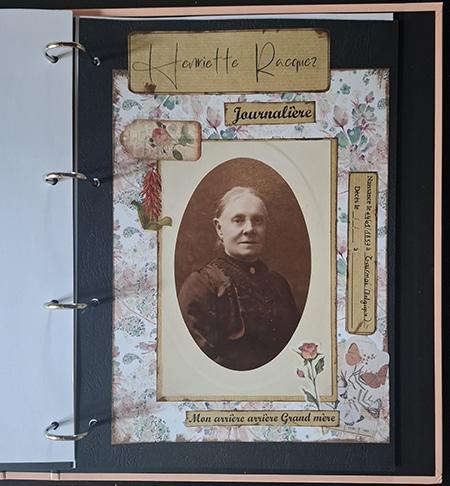 Henriette Racquez
Journalière
Naissance le
à Tournai (Belgique)
Décès le __/__/____ à
Mon arrière arrière Grand mère